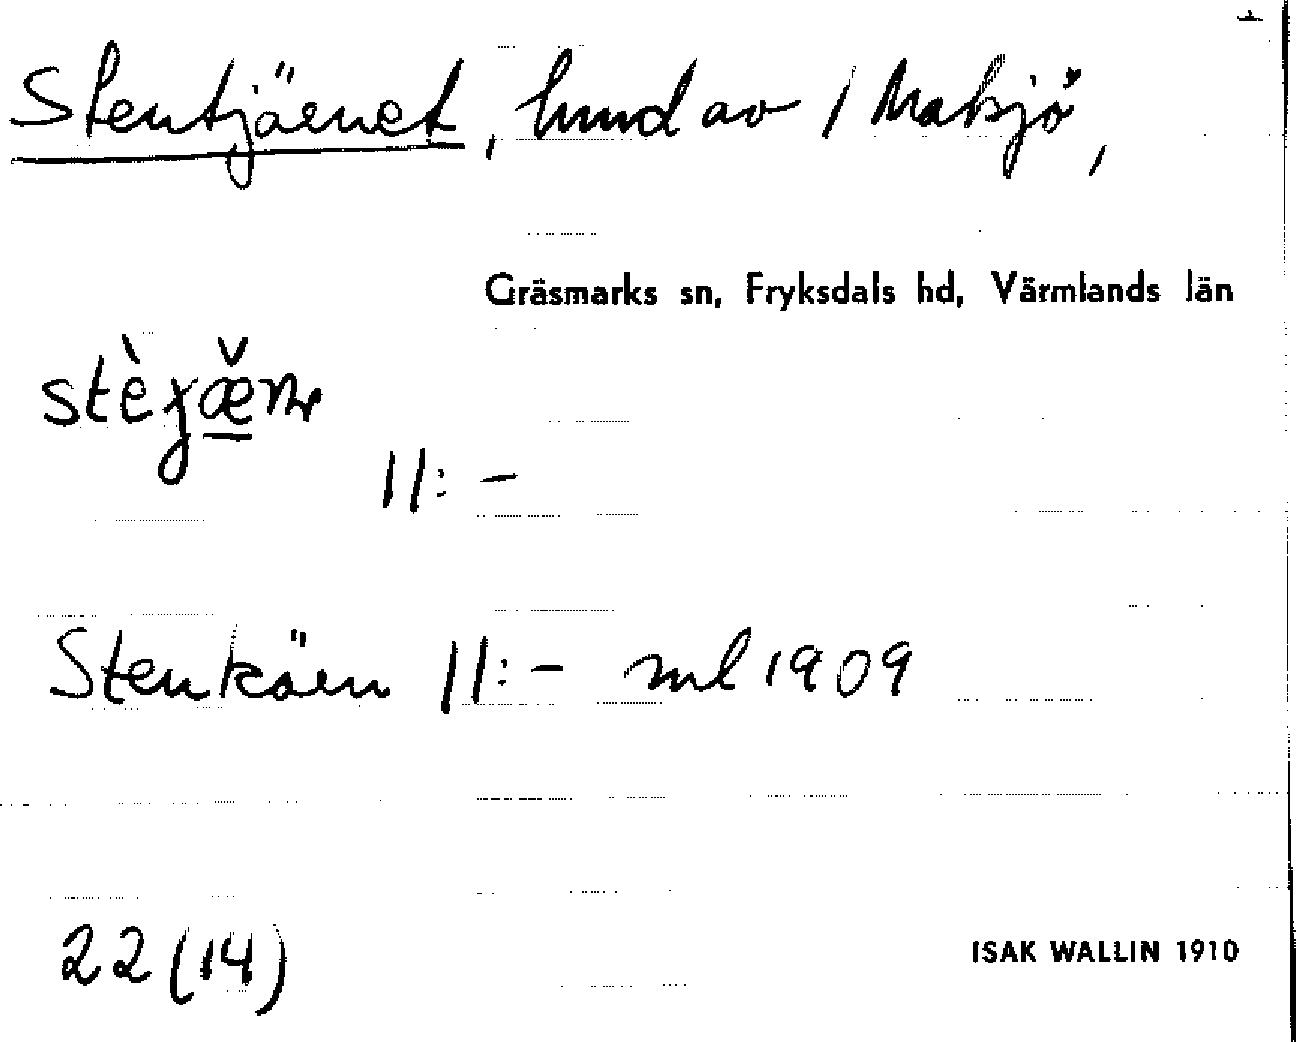 Stentjäenet, hmd av 1 Maksjö,
Gräsmarks sn, Fryksdals hd, Värmlands län
11:-
Stenkäen 11:- ml 1909
22 (14)
ISAK WALLIN 1910